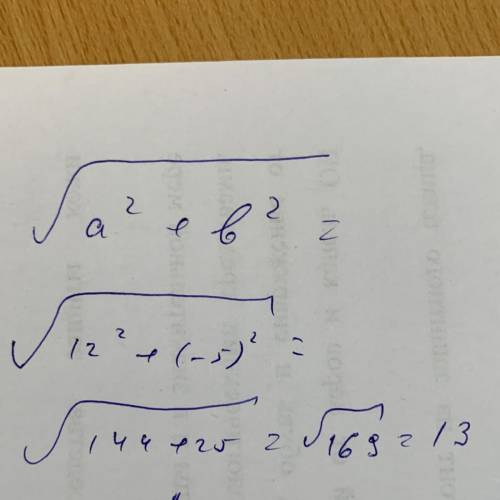 √a² + b² =
√12² + (-5)² =
√144 + 25 = √169 = 13